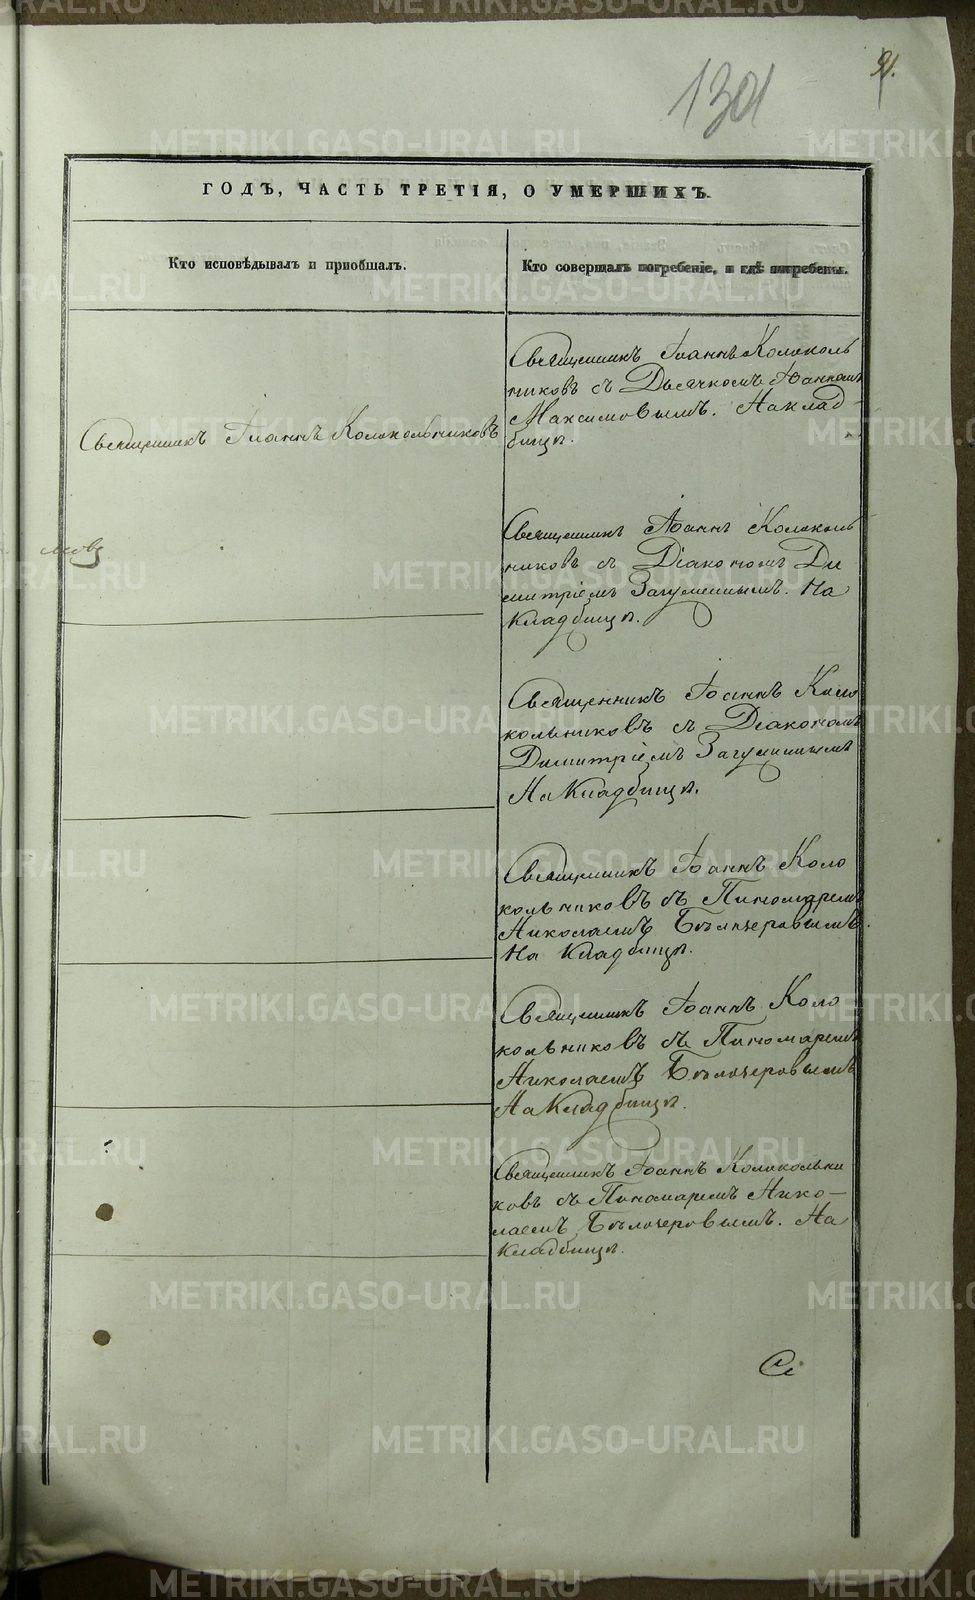 91.
1301
ГОДЪ, ЧАСТЬ ТРЕТІЯ, О УМЕРШИХЪ.
Кто исповѣдывалъ и приобщалъ.
Кто совершалъ погребеніе, и гдѣ погребены.
Священникъ Іоаннъ Колокольниковъ
Священникъ Іоаннъ Колоколь
никовъ съ Дьячкомъ Іоанномъ
Максимовымъ. На клад-
бищѣ.
Священникъ Іоаннъ Коло́коль
никовъ съ Діакономъ Ди
митріемъ Загуменнымъ. На
кладбищѣ.
Священникъ Іоаннъ Коло
кольниковъ съ Діакономъ
Димитріемъ Загуменнымъ
На Кладбищѣ.
Священникъ Іоаннъ Коло
кольниковъ съ Пономаремъ
Николаемъ Бѣлозеровымъ.
На Кладбищѣ.
Священникъ Іоаннъ Коло
кольниковъ съ Пономаремъ
Николаемъ Бѣлозеровымъ
На Кладбищѣ.
Священникъ Іоаннъ Колокольни
ковъ съ Пономаремъ Нико-
лаемъ Бѣлозеровымъ. На
Кладбищѣ.
METRIKI.GASO-URAL.RU